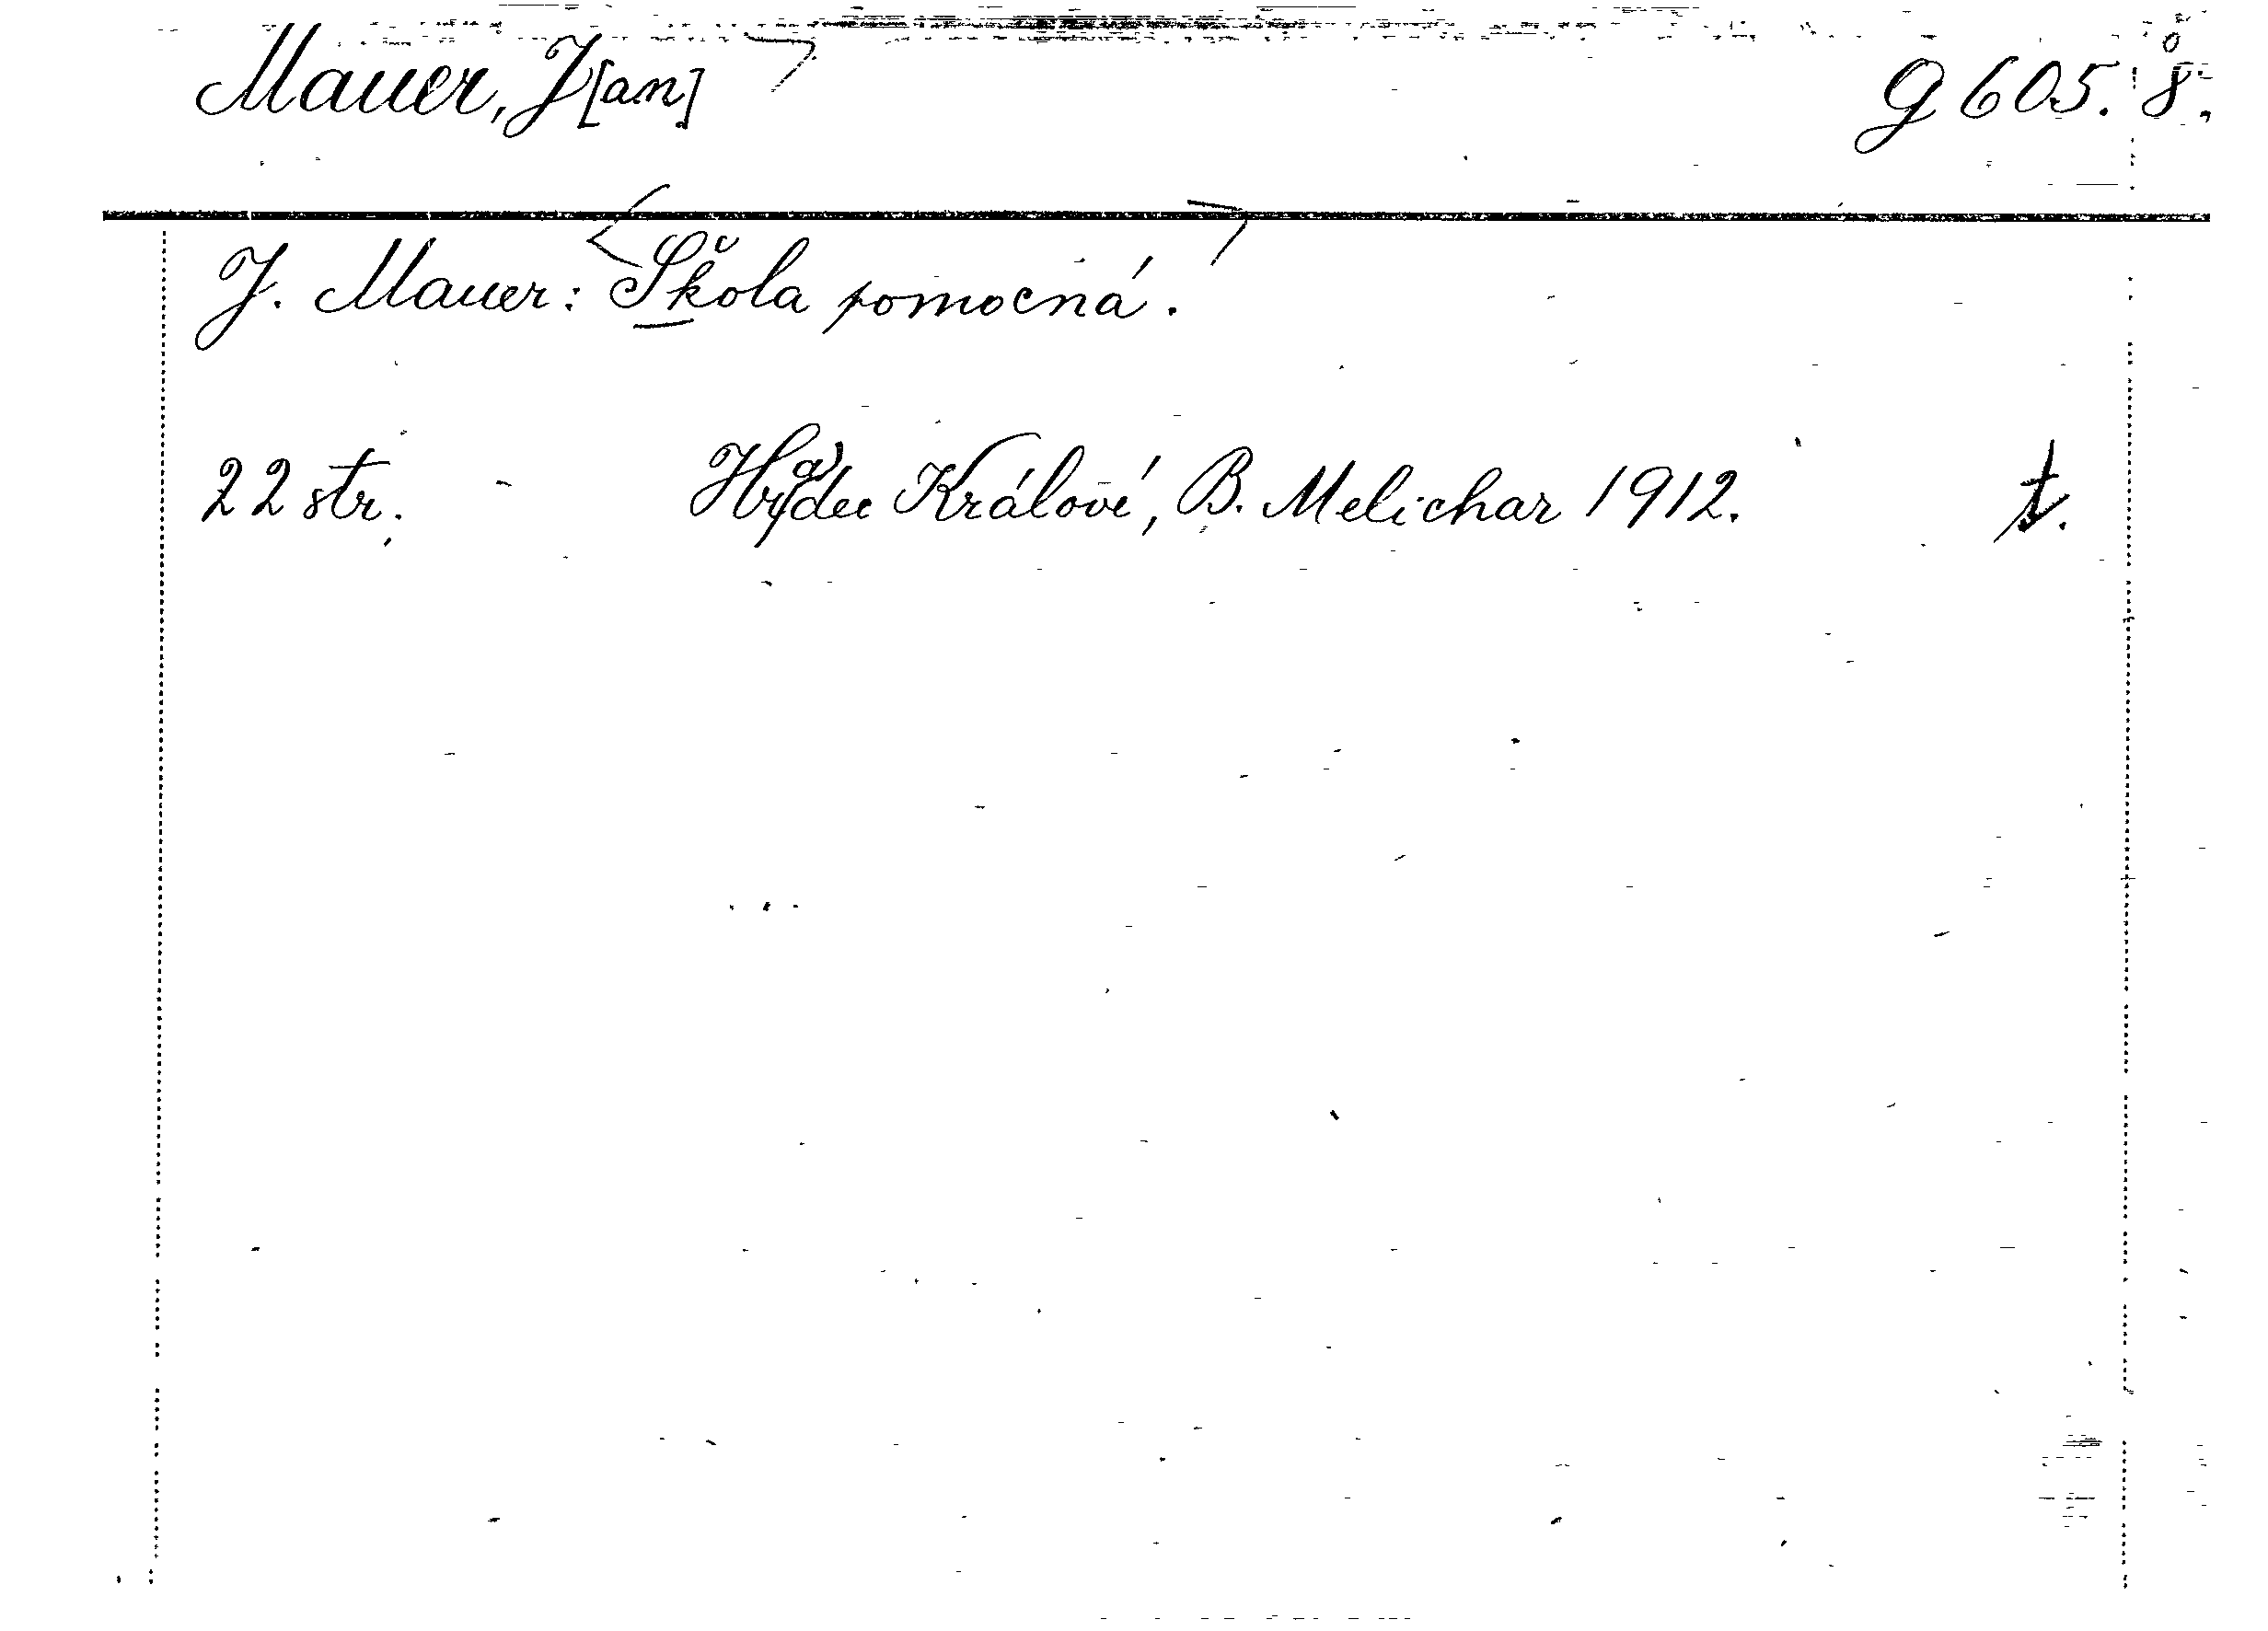 Mauer, J[an] g 605. 8°.
J. Mauer: Škola pomocná.
22 str. - Hradec Králové, B. Melichar 1912. t.